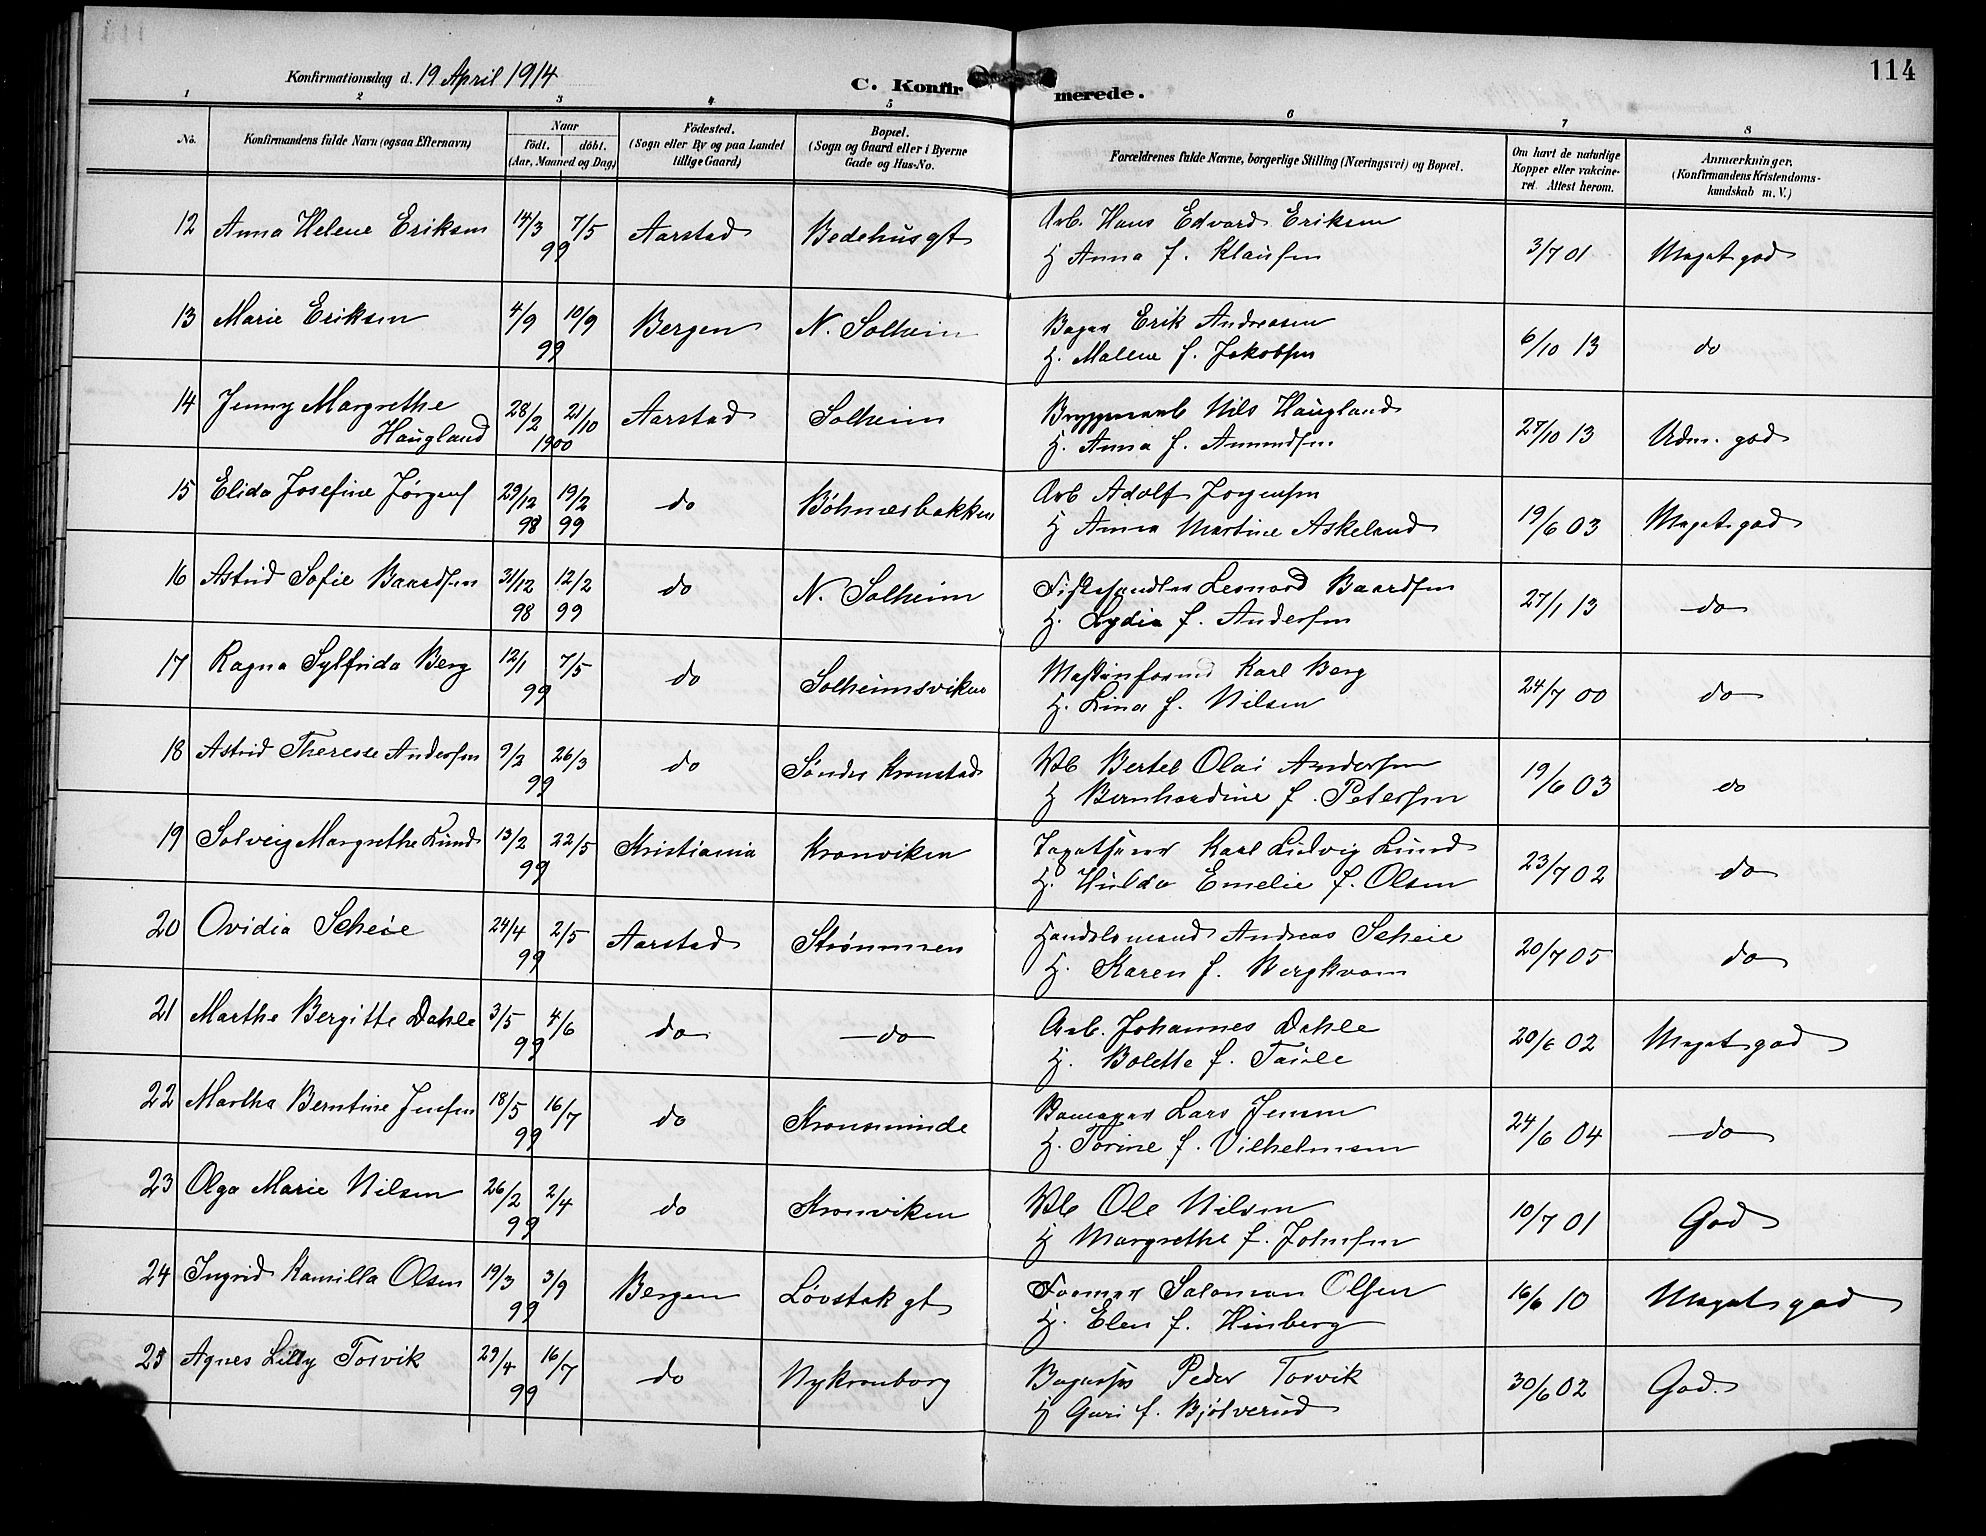 Konfirmationsdag d. 19 April 1914
C. Konfirmerede.
114
1 2 3 4 5 6 7 8
No. Konfirmandens fulde Navn (ogsaa Efternavn) Naar født. døbt. (Aar, Maaned og Dag) Födested. (Sogn eller By og paa Landet tillige Gaard) Bopæl. (Sogn og Gaard eller i Byerne Gade og Hus-No. Forældrenes fulde Navne, borgerlige Stilling (Næringsvei) og Bopæl. Om havt de naturlige Kopper eller vakcineret. Attest herom. Anmærkninger. (Konfirmandens Kristendomskundskab m. V.)
12 Anna Helene Eriksen 14/3 7/5 99 Aarstad Bedehusgt Arb. Hans Edvard Eriksen 3/7 01 Meget god
H Anna f. Klausen
13 Marie Eriksen 4/9 10/9 99 Bergen N. Solheim Bager Erik Andreasen 6/10 13 do
H. Malene f. Jakobsen
14 Jenny Margrethe Haugland 28/2 21/10 1900 Aarstad Solheim Nils Haugland 27/10 13 Udm. god
H. Anna f. Amundsen
15 Elida Josefine Jørgens 29/12 98 19/2 99 do Böhmerbakken Arb Adolf Jørgensen 19/6 03 Meget god
H Anna Martine Askeland
16 Astrid Sofie Baardsen 31/12 98 12/2 99 do N. Solheim Fiskehandler Leonard Baardsen 27/1 13 do
H. Lydia f. Andersen
17 Ragna Sylfrida Berg 12/1 7/5 99 do Solheimsviken Karl Berg 24/7 00 do
H. Lina f. Nilsen
18 Astrid Therese Andersen 9/2 26/3 99 do Søndre Kronstad Bertel Olai Andersen 19/6 03 do
H Bernhardine f. Petersen
19 Solveig Margrethe Lund 13/2 22/5 99 Kristiania Kronviken Karl Ludvig Lund 23/7 02 do
H. Hulda Emelie f. Olsen
20 Ovidia Scheie 24/4 2/5 99 Aarstad Strømmen Handelsmand Andreas Scheie 20/7 05 do
H. Karen f. Bergkvam
21 Marthe Bergitte Dahle 3/5 4/6 99 do do Arb. Johannes Dahle 20/6 02 Meget god
H. Bolette f. Taule
22 Martha Berntine Jensen 18/5 16/7 99 do Kronsminde Lars Jensen 24/6 04 do
H. Torine f. Vilhelmsen
23 Olga Marie Nilsen 26/2 2/4 99 do Kronviken Ole Nilsen 10/7 01 God
H Margrethe f. Johnsen
24 Ingrid Kamilla Olsen 19/3 3/9 99 Bergen Løvstakgt Former Salomon Olsen 16/6 10 Meget god
H. Elen f. Hinberg
25 Agnes Lilly Torvik 29/4 16/7 99 do Nykronborg Peder Torvik 30/6 02 God.
H Guri f. Bjølverud